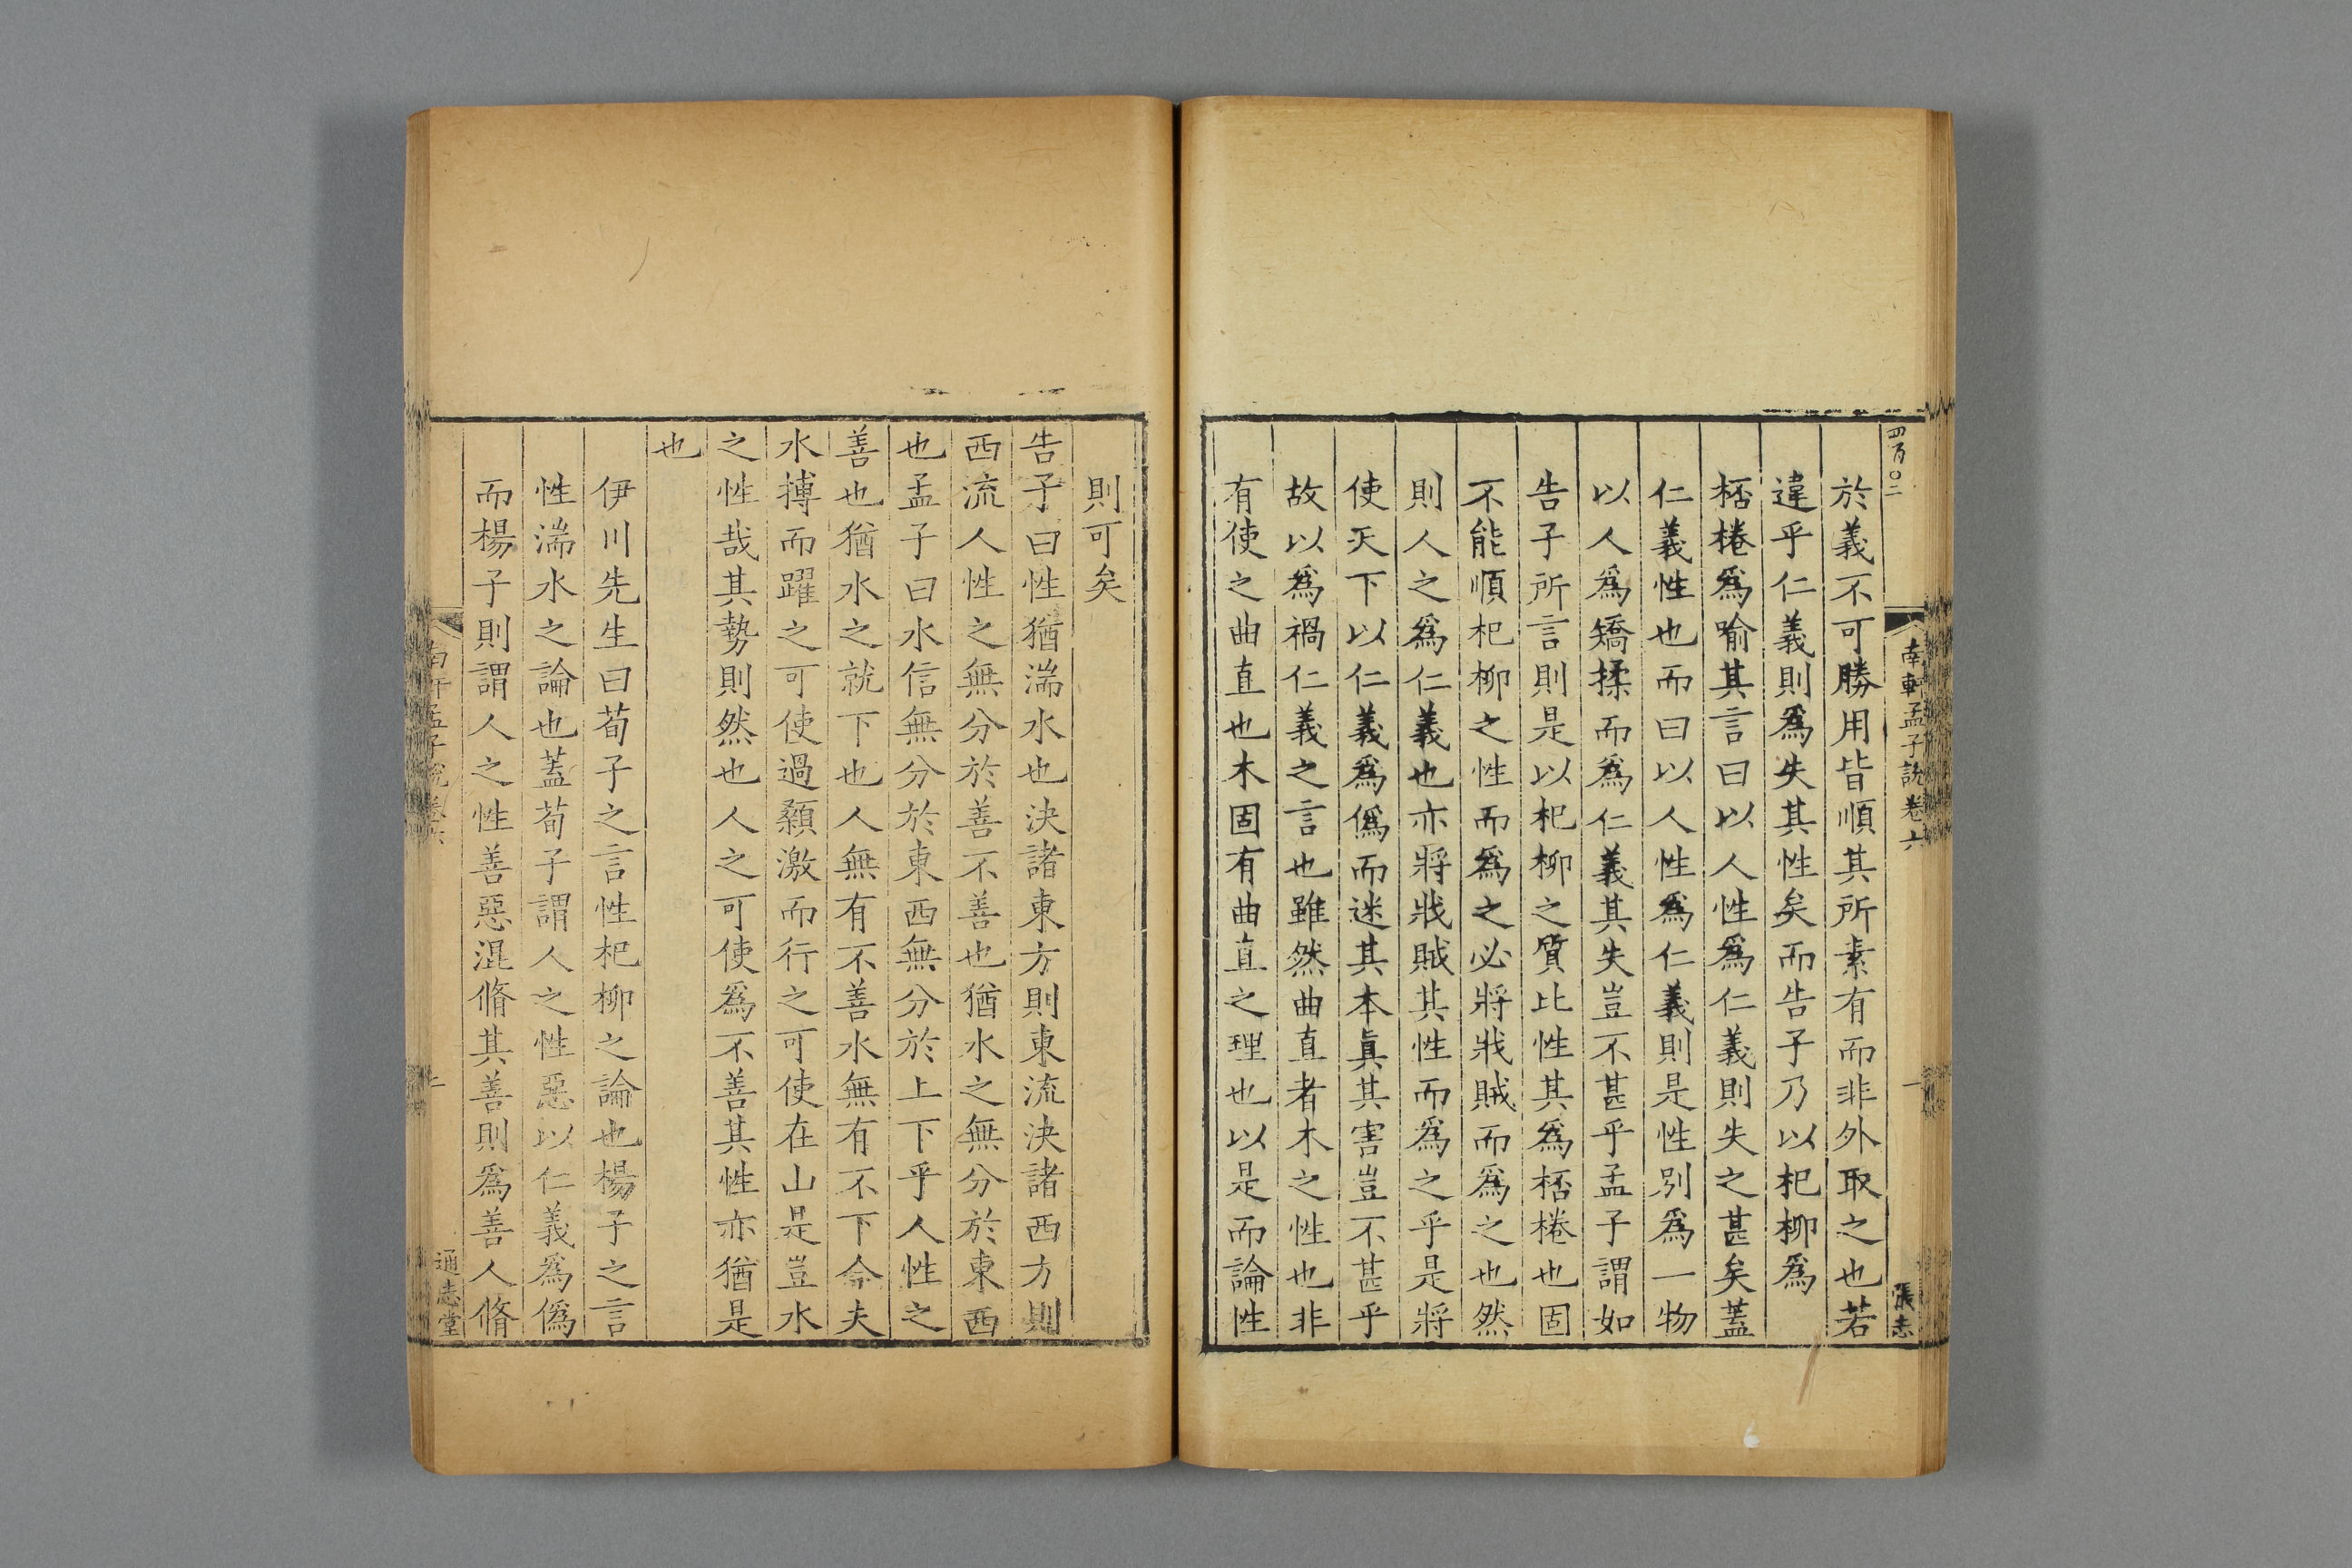 四百〇二
南軒孟子説卷六
一
張志
於義不可勝用皆順其所素有而非外取之也若
違乎仁義則爲失其性矣而告子乃以杞柳爲
桮棬爲喻其言曰以人性爲仁義則失之甚矣蓋
仁義性也而曰以人性爲仁義則是性别爲一物
以人爲矯揉而爲仁義其失豈不甚乎孟子謂如
告子所言則是以杞柳之質比性其爲桮棬也固
不能順杞柳之性而爲之必將戕賊而爲之也然
則人之爲仁義也亦將戕賊其性而爲之乎是將
使天下以仁義爲僞而迷其本真其害豈不甚乎
故以爲禍仁義之言也雖然曲直者木之性也非
有使之曲直也木固有曲直之理也以是而論性
則可矣
告子曰性猶湍水也決諸東方則東流決諸西方則
西流人性之無分於善不善也猶水之無分於東西
也孟子曰水信無分於東西無分於上下乎人性之
善也猶水之就下也人無有不善水無有不下今夫
水搏而躍之可使過顙激而行之可使在山是豈水
之性哉其勢則然也人之可使爲不善其性亦猶是
也
伊川先生曰荀子之言性杞柳之論也楊子之言
性湍水之論也蓋荀子謂人之性惡以仁義爲僞
而楊子則謂人之性善惡混脩其善則爲善人脩
通志堂